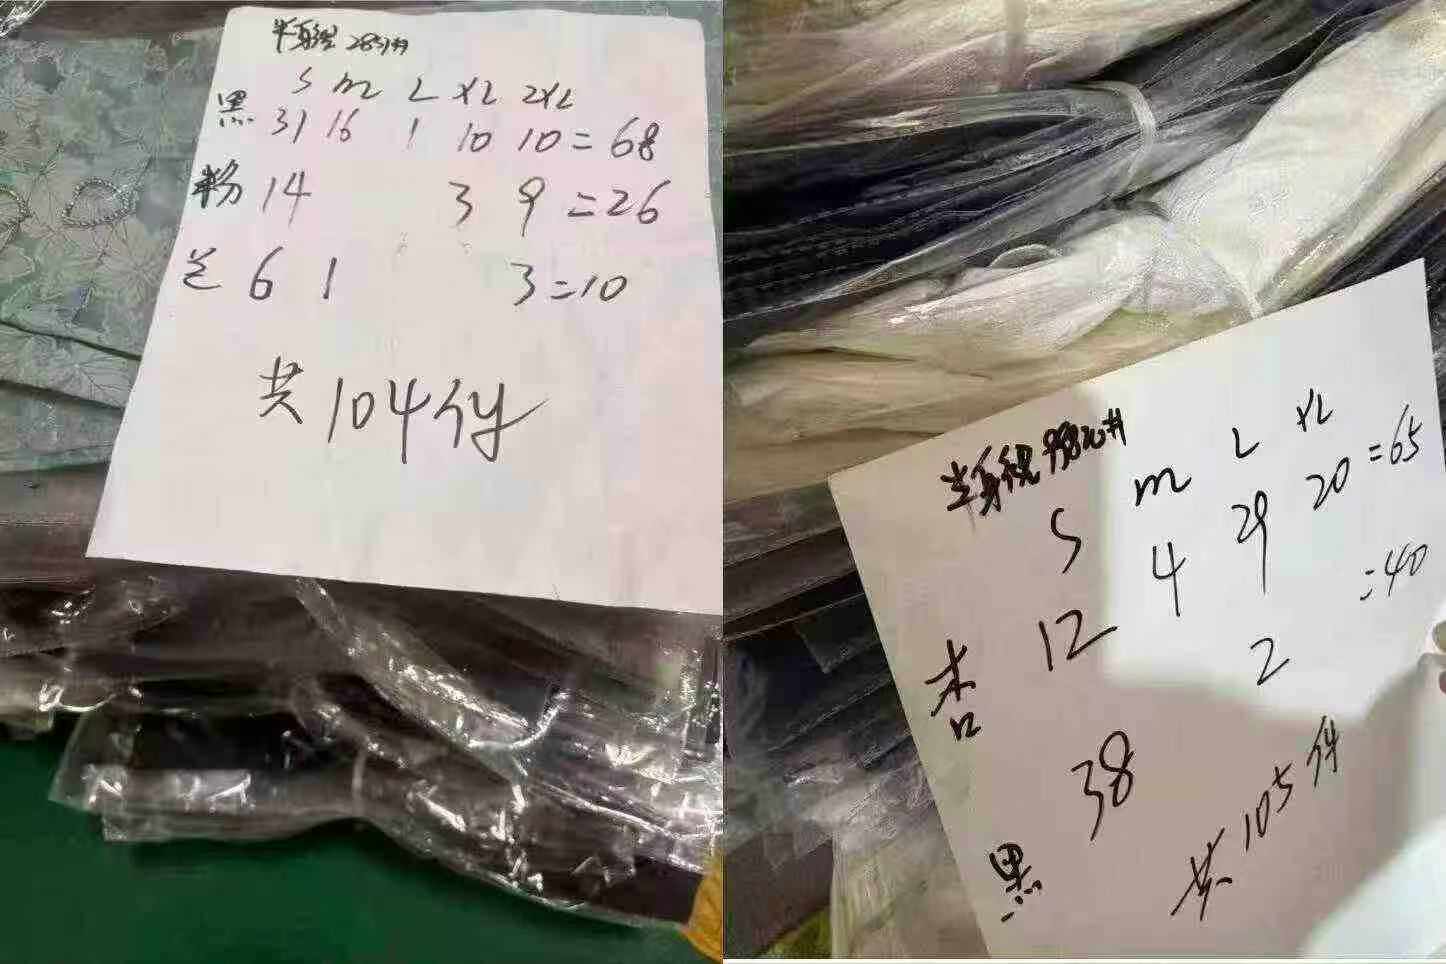 半身裙 2851#
S M L XL 2XL
黑 31 16 1 10 10=68
粉 14 3 9=26
兰 6 1 3=10
共104件
半身裙 9820#
S M L XL
杏 12 4 29 20=65
黑 38 2 =40
共105件